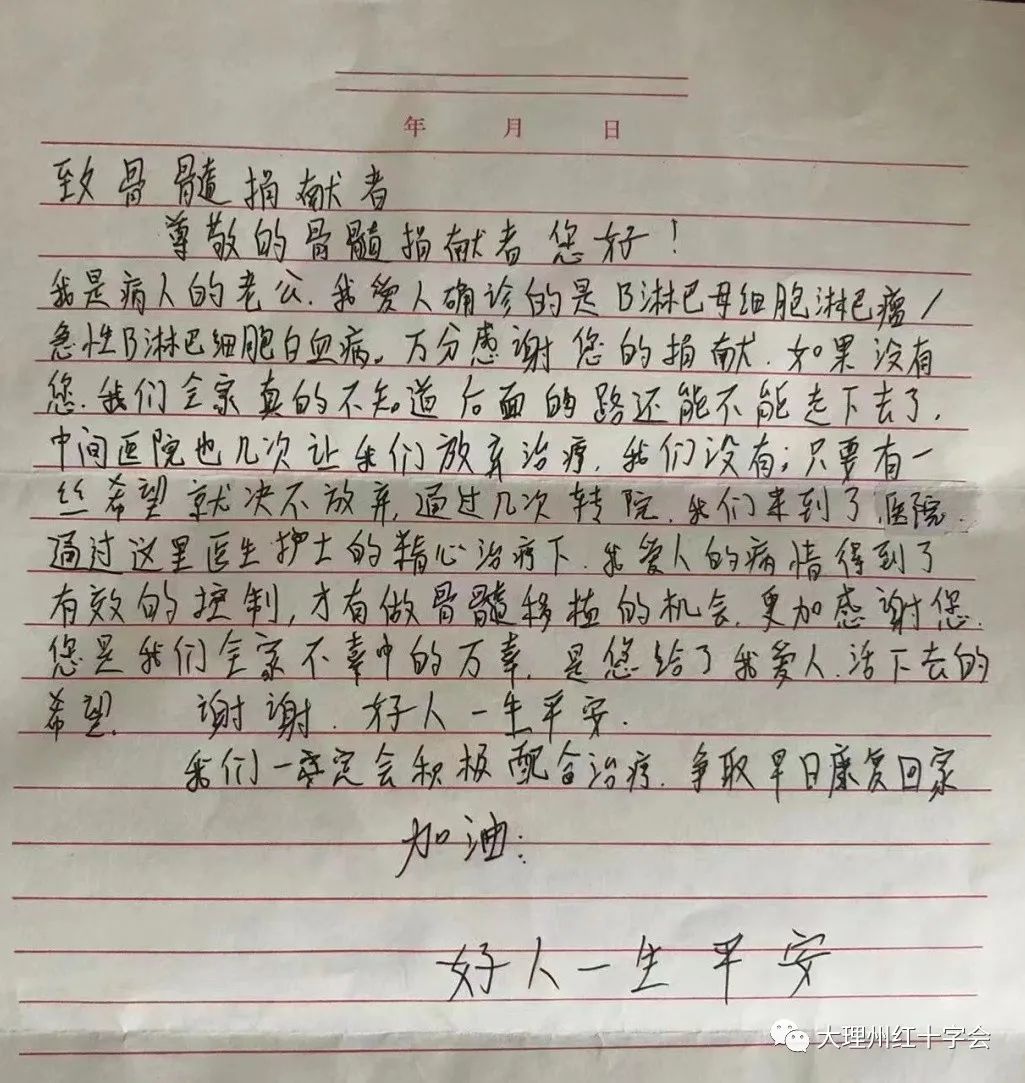 年 月 日
致骨髓捐献者
尊敬的骨髓捐献者您好!
我是病人的老公.我爱人确诊的是B淋巴母细胞淋巴瘤/
急性B淋巴细胞白血病。万分感谢您的捐献.如果没有
您.我们全家真的不知道后面的路还能不能走下去了.
中间医院也几次让我们放弃治疗.我们没有;只要有一
丝希望就决不放弃,通过几次转院.我们来到了.医院.
通过这里医生护士的精心治疗下.我爱人的病情得到了
有效的控制,才有做骨髓移植的机会.更加感谢您.
您是我们全家不幸中的万幸.是您给了我爱人.活下去的
希望. 谢谢.好人一生平安.
我们一定会积极配合治疗.争取早日康复回家
加油:
好人一生平安
大理州红十字会